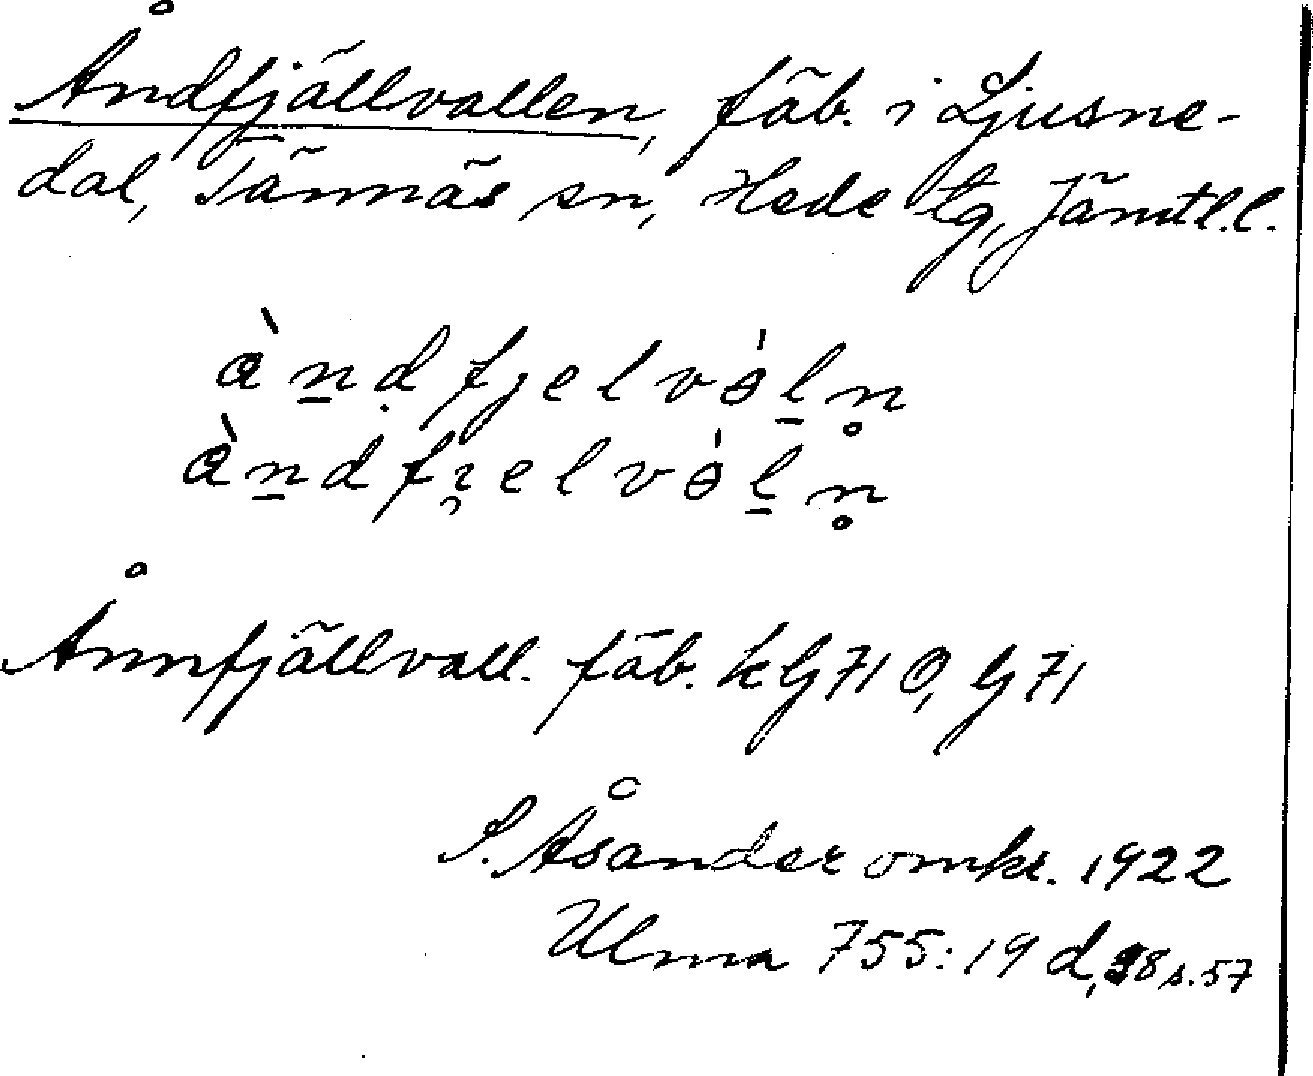 Åndfjällvallen, fäb. i Ljusne-
dal, Tännäs sn, Hede tg, Jämtl.l.
ὰn̲ḍfjelvɵ̀l̲n̥
ὰn̲dfı̨elvɵ̀l̲n̥
Ånnfjällvall. fäb. kG71 Ö, G71
S. Åsander omkr. 1922
Ulma 755:19 d, s. 57